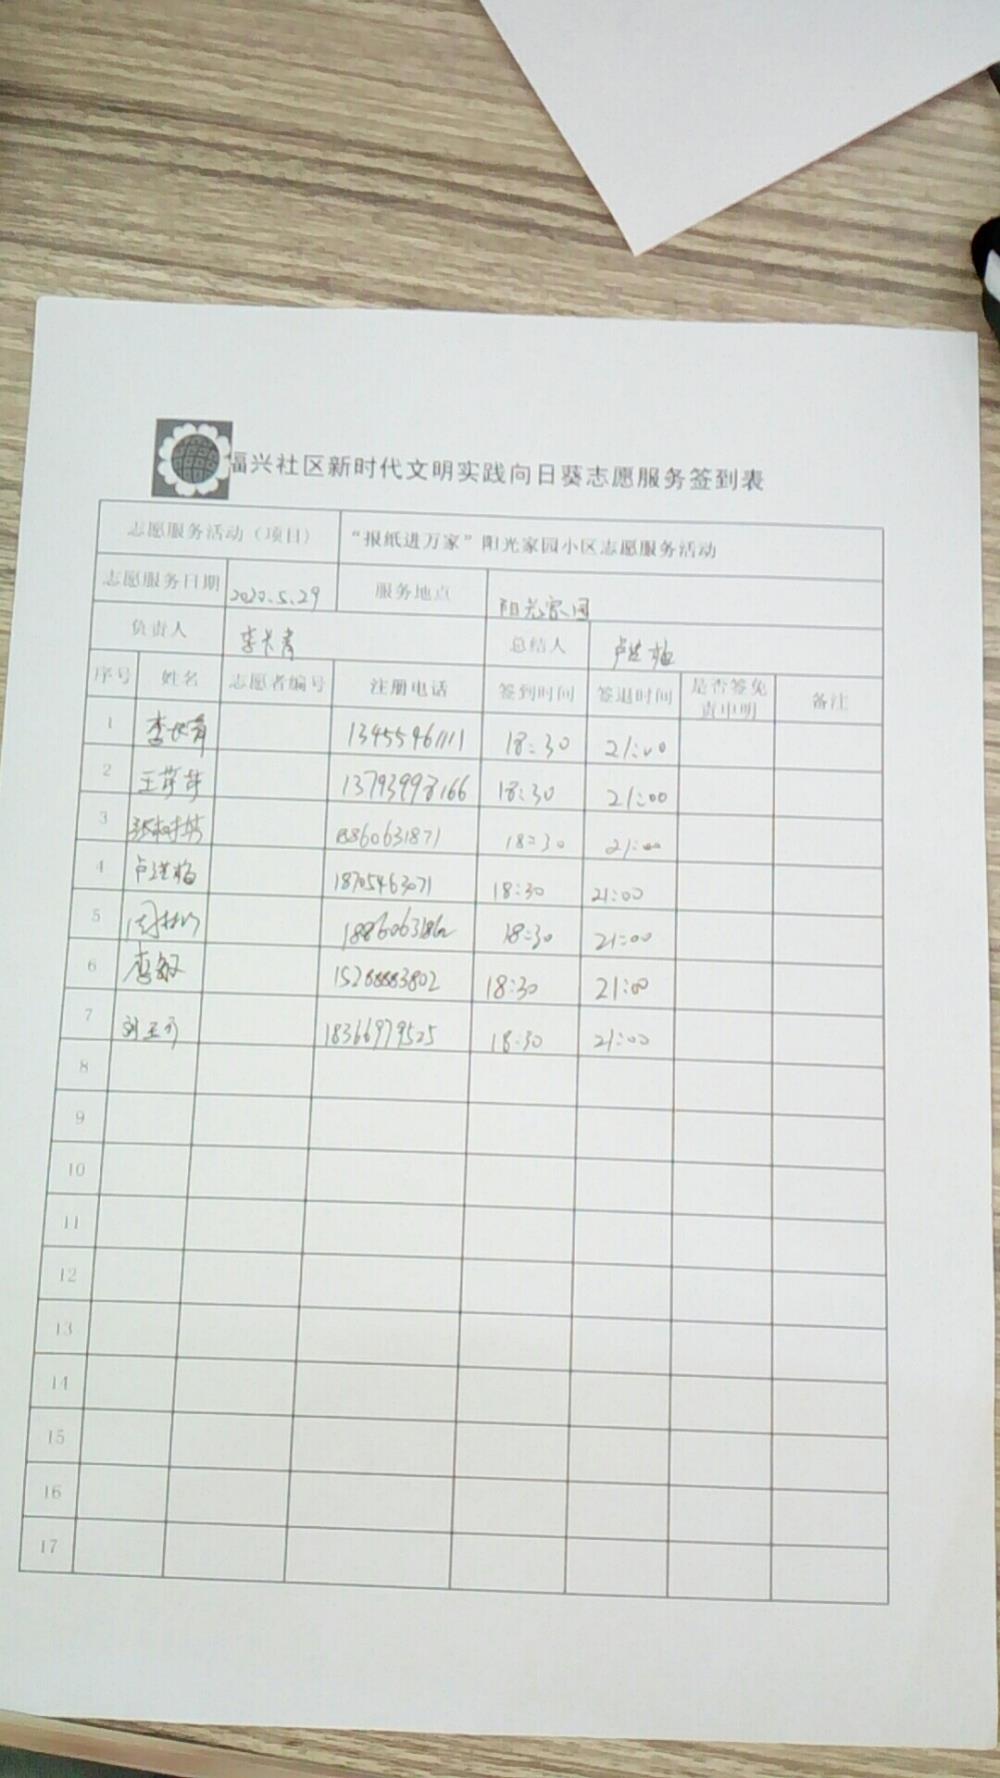 福兴社区新时代文明实践向日葵志愿服务签到表
志愿服务活动（项目） “报纸进万家”阳光家园小区志愿服务活动
志愿服务日期 2020.5.29 服务地点 阳光家园
负责人 李长青 总结人
序号 姓名 志愿者编号 注册电话 签到时间 签退时间 是否签免责申明 备注
1 李长青 13455461111 18:30 21:00
2 13793998166 18:30 21:00
3 18860631871 18:30 21:00
4 18705463071 18:30 21:00
5 18:30 21:00
6 15288883802 18:30 21:00
7 18366979525 18:30 21:00
8
9
10
11
12
13
14
15
16
17